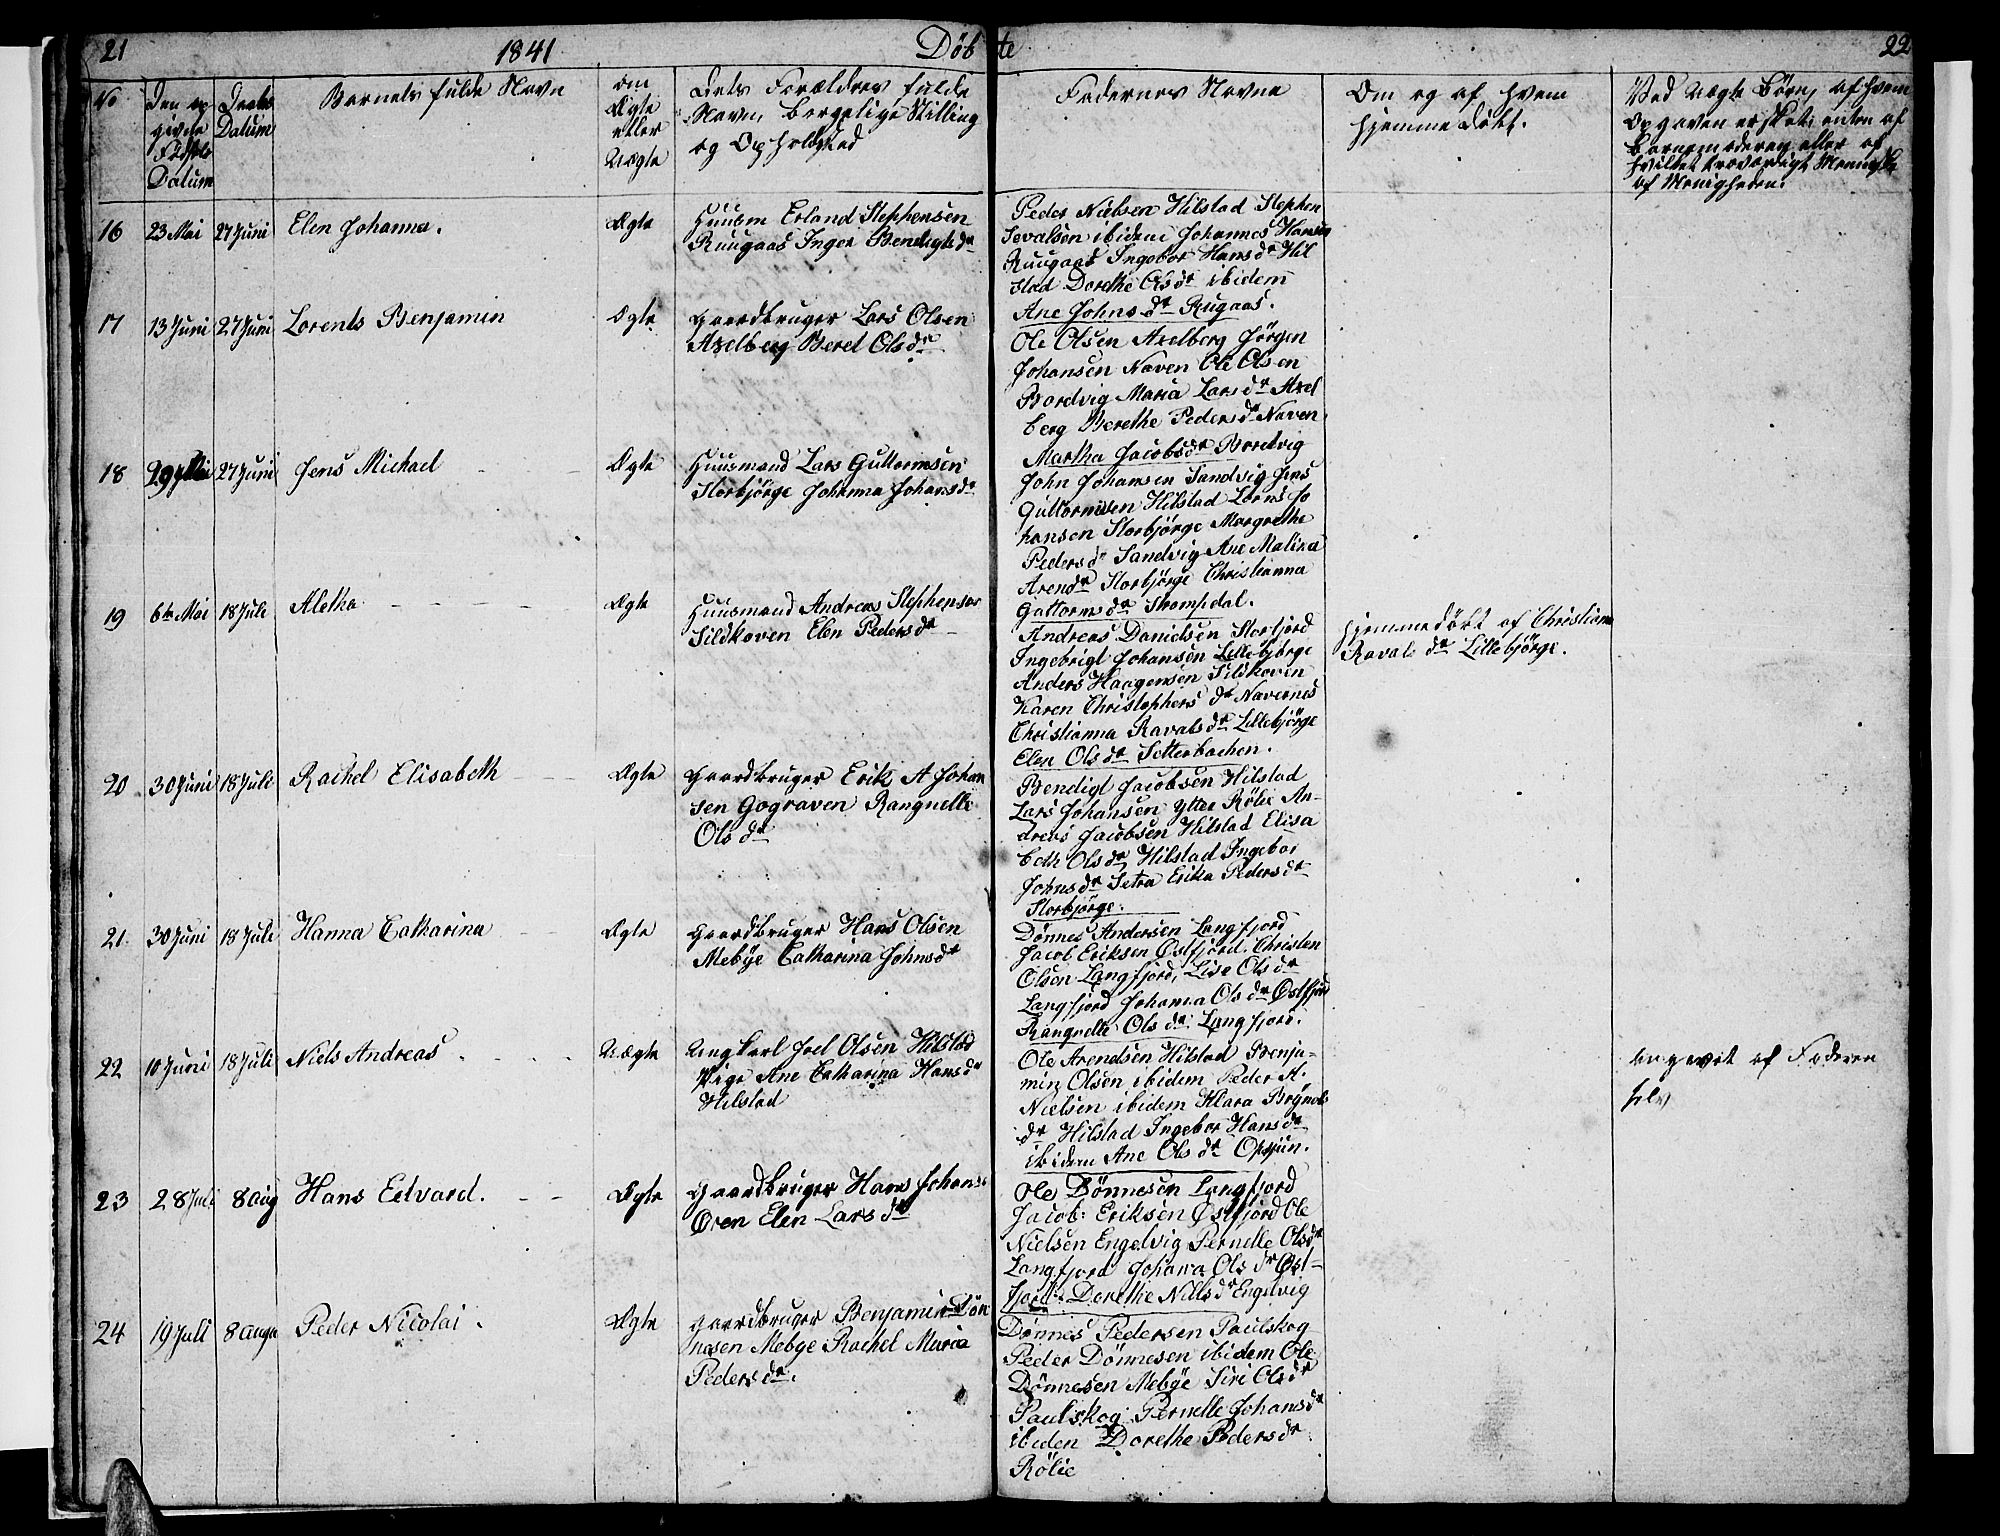 21
1841
Döbte
22
No
Den op
givne
Födsels
Datum
Daabs
Datum
Barnets fulde Navn
Om
Ægte
eller
Uægte
Dets Forældres fulde
Navn, borgelige Stilling
og Opholdsted
Faddernes Navne
Om og af hvem
hjemmedöbt.
Ved uægte Börn, af hvem
Opgaven er sket: enten af
Barnemoderen eller af
hvilket troværdigt Menniske
af Menigheden.
16
23 Mai
27 Juni
Elen Johanna.
Ægte
Huusm Erland Stephensen
Ruugaas Inger Bendigtsdr
Peder Nielsen Hilstad Stephen
Sevalsen ibidem Johannes Hansen
Ruugaas Ingebor Hansdr Hil
stad Dorethe Olsdr ibidem
Ane Johnsdr Rugaas.
17
13 Juni
27 Juni
Lorents Benjamin
Ægte
Gaardbruger Lars Olsen
Axelberg Beret Olsdr
Ole Olsen Axelberg Jörgen
Johansen Naven Ole Olsen
Bordvig Maria Larsdr Axel
berg Berethe Pedersdr Naven
Martha Jacobsdr Bordvig
18
29 Mai
27 Juni
Jens Michael
Ægte
Huusmand Lars Guttormsen
Storbjörge Johanna Johansdr
John Johansen Sandvig Jens
Guttormsen Hilstad Lorns Jo
hansen Storbjörge Margrethe
Pedersdr Sandvig Ane Malina
Arendr Storbjörge Christianna
Guttormsdr Strompdal.
19
6te Mai
18 Juli
Aletha
Ægte
Huusmand Andreas Stephensen
Sildkoven Elen Pedersdr
Andreas Danielsen Storfjord
Ingebrigt Johansen Lillebjörge
Anders Haagensen Sildkoven
Karen Christophersdr Navernes
Christianna Ravalsdr Lillebjörge
Elen Olsdr Setterbachen.
hjemmedöbt af Christiana
Ravalsdr Lillebjörge.
20
30 Juni
18 Juli
Rachel Elisabeth
Ægte
Gaardbruger Erik A Johan
sen Gograven Rangnelle
Olsdr
Bendigt Jacobsen Hilstad
Lars Johansen Ytter Rölie An-
dreas Jacobsen Hilstad Elisa
beth Olsdr Hilstad Ingebor
Johnsdr Setra Erika Pedersdr
Storbjörge.
21.
30 Juni
18 Juli
Hanna Catharina
Ægte
Gaardbruger Hans Olsen
Mebÿe Catharina Johnsdr
Dönnes Andersen Langfjord
Jacob Eriksen Østfjord. Christen
Olsen Langfjord, Lise Olsdr
Langfjord Johanna Olsdr Østfjord
Rangnelle Olsdr Langfjord.
22
10 Juni
18 Juli
Niels Andreas
Uægte
Ungkarl Joel Olsen Hilstad
Pige Ane Catharina Hansdr
Hilstad
Ole Arendsen Hilstad Benja-
min Olsen ibidem Peder A.
Nielsen ibidem Klara Brÿnels
dr Hilstad Ingebor Hansdr
ibidem Ane Olsdr Opsjün.
angivet af Faderen
selv
23
28 Juli
8 Aug
Hans Edvard.
Ægte
Gaardbruger Hans Johans:
Øren Elen Larsdr
Ole Dönnesen Langfjord
Jacob: Eriksen Østfjord Ole
Nielsen Engelvig Pernelle Olsdr
Langfjord Johanna Olsdr Øst-
fjord: Dorethe Nielsdr Engelvig
24
19 Juli
8 Augu
Peder Nicolai.
Ægte
Gaardbruger Benjamin Dön
nesen Mebye Rachel Maria
Pedersdr.
Dönnes Pedersen Paulskog
Peder Dönnesen ibidem Ole
Dönnesen Mebÿe Siri Olsdr
Paulskog Pernelle Johansdr
ibiden Dorethe Pedersdr
Rölie